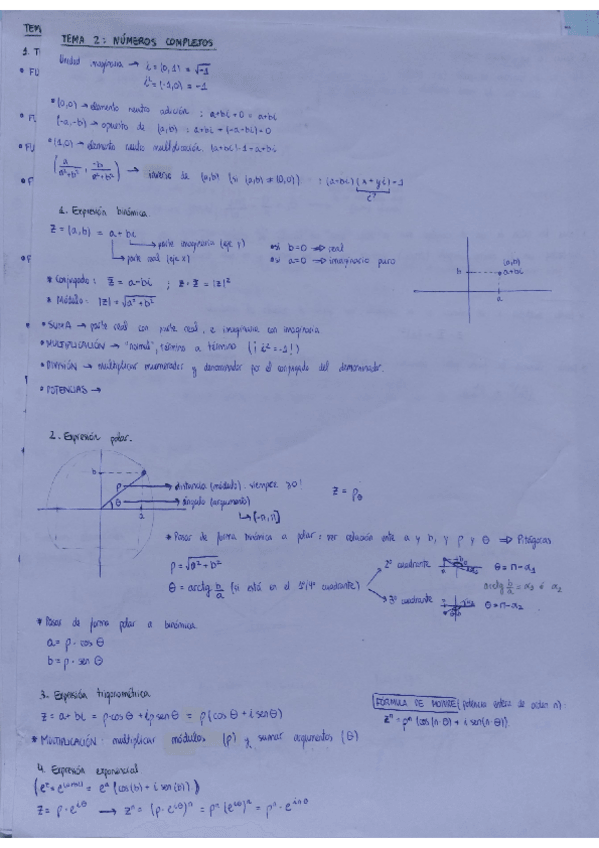 TEM
TEMA 2: NÚMEROS COMPLETOS
1. T
Unidad imaginaria → i = (0,1) = √-1
i² = (-1,0) = -1
• FU
• (0,0) → elemento neutro adición : a+bi+0 = a+bi
(-a,-b) → opuesto de (a,b) : a+bi + (-a-bi) = 0
• (1,0) → elemento neutro multiplicación (a+bi)·1 = a+bi
(a/a²+b² , -b/a²+b²) → inverso de (a,b) (si (a,b) ≠ (0,0)) : (a+bi)(x+yi) = 1
1. Expresión binómica.
z = (a,b) = a+bi
parte imaginaria (eje y)
parte real (eje x)
• si b=0 ⇒ real
• si a=0 ⇒ imaginario puro
(a,b)
a+bi
b
a
• Conjugado: z̄ = a-bi ; z·z̄ = |z|²
• Módulo: |z| = √a²+b²
• SUMA → parte real con parte real, e imaginaria con imaginaria
• MULTIPLICACIÓN → "normal", término a término (¡ i² = -1!)
• DIVISIÓN → multiplicar numerador y denominador por el conjugado del denominador.
• POTENCIAS →
2. Expresión polar.
b
ρ → distancia (módulo). siempre ≥0!
θ → ángulo (argumento)
a
↳ (-π,π]
z = ρθ
• Pasar de forma binómica a polar: ver relación entre a y b, y ρ y θ ⇒ Pitágoras
ρ = √a²+b²
θ = arctg b/a (si está en el 1º/4º cuadrante)
2º cuadrante θ = π-α₁
arctg b/a = α₁ ó α₂
3º cuadrante θ = π-α₂
• Pasar de forma polar a binómica
a = ρ · cos θ
b = ρ · sen θ
3. Expresión trigonométrica
z = a+bi = ρ·cos θ + iρ sen θ = ρ(cos θ + i sen θ)
FÓRMULA DE MOIVRE (potencia entera de orden n):
zⁿ = ρⁿ (cos(n·θ) + i sen(n·θ))
• MULTIPLICACIÓN: multiplicar módulos (ρ) y sumar argumentos (θ)
4. Expresión exponencial
= eᵃ (cos(b) + i sen(b))
z = ρ · e^iθ → zⁿ = (ρ·e^iθ)ⁿ = ρⁿ (e^iθ)ⁿ = ρⁿ · e^inθ